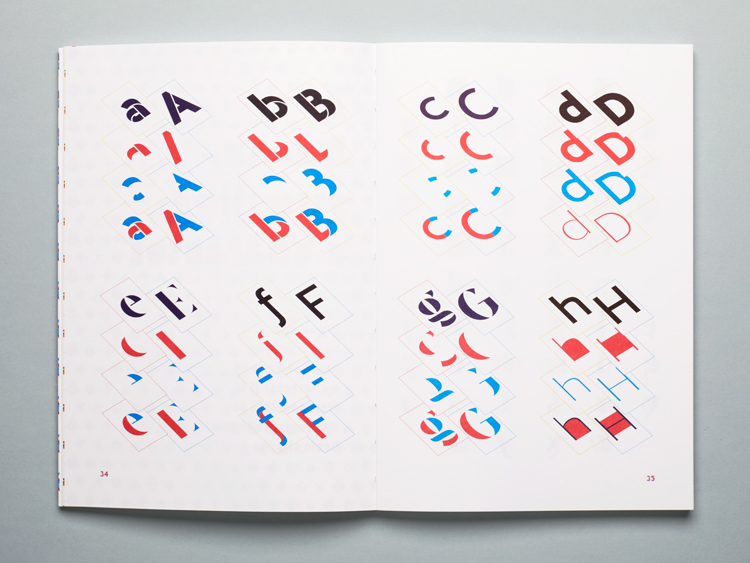 a A b B
a A b B
e E f F
e E f F
34
c C d D
c C d D
d D
c C d D
g G h H
h H
g G h H
35